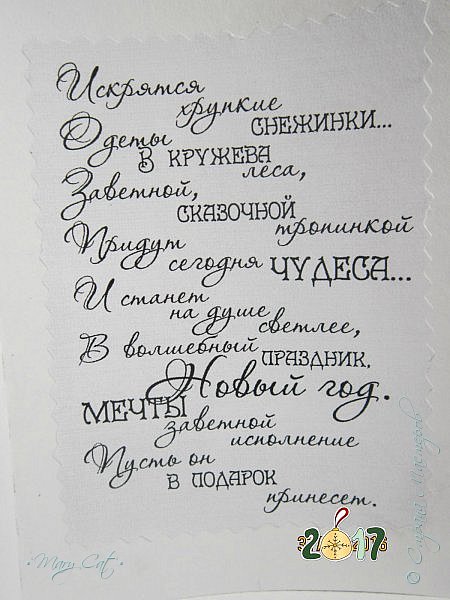 Искрятся
хрупкие
СНЕЖИНКИ...
Одеты
В КРУЖЕВА
леса,
Заветной,
СКАЗОЧНОЙ
тропинкой
Придут
сегодня ЧУДЕСА...
И станет
на душе
светлее,
В волшебный ПРАЗДНИК,
Новый год.
МЕЧТЫ
заветной
исполнение
Пусть он
В ПОДАРОК
принесет.
2017
:Mary Cat:
© Страна Мастеров